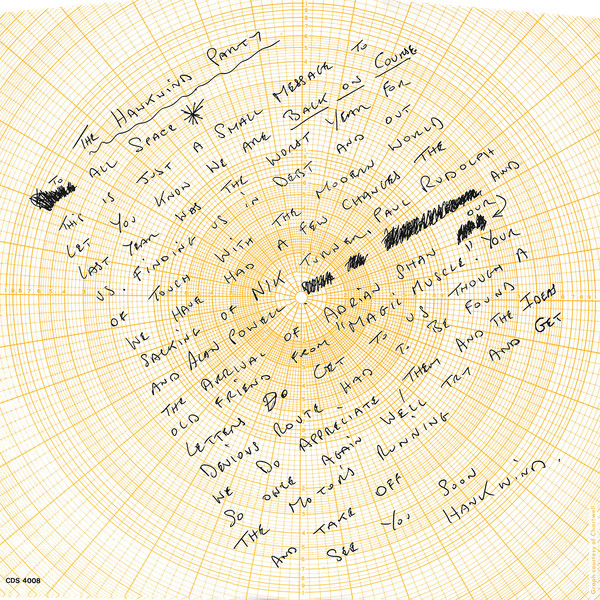 THE HAWKWIND PARTY
TO ALL SPACE
THIS IS JUST A SMALL MESSAGE TO
LET YOU KNOW WE ARE BACK ON COURSE
LAST YEAR WAS THE WORST YEAR FOR
US. FINDING US IN DEBT AND OUT
OF TOUCH WITH THE MODERN WORLD
WE HAVE HAD A FEW CHANGES THE
SACKING OF NIK TURNER, PAUL RUDOLPH
AND ALAN POWELL AND
THE ARRIVAL OF ADRIAN SHAW OUR
OLD FRIEND FROM "MAGIC MUSCLE". YOUR
LETTERS DO GET TO US THOUGH A
DEVIOUS ROUTE HAD TO BE FOUND
WE DO APPRECIATE THEM AND THE IDEAS
SO ONCE AGAIN WE'LL TRY AND GET
THE MOTORS RUNNING
AND TAKE OFF
SEE YOU SOON
HAWKWIND.
CDS 4008
Graph courtesy of Chartwell